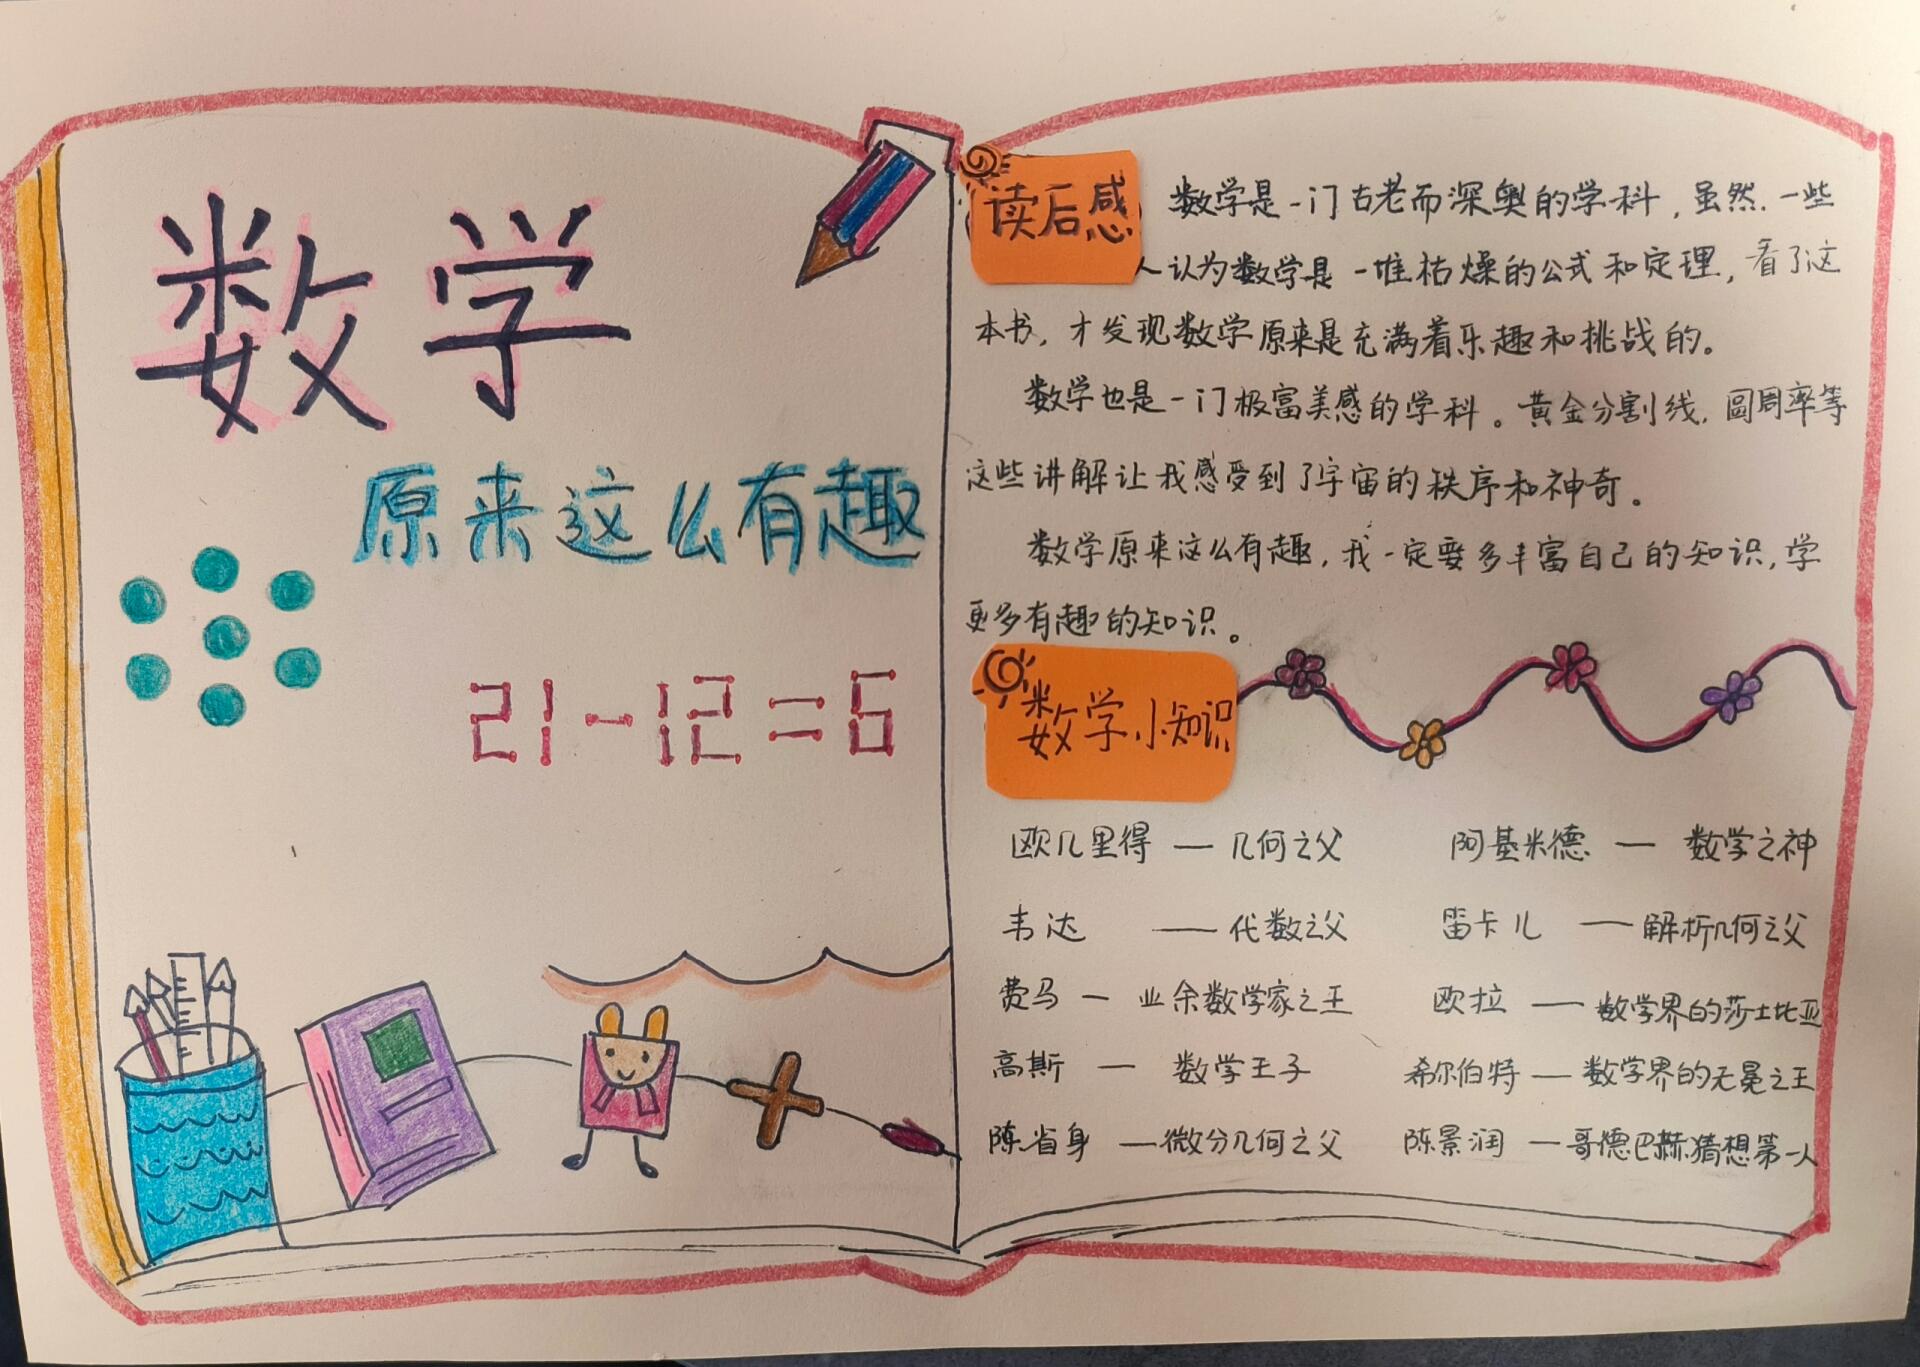 数学
原来这么有趣
21-12=6
读后感
数学是一门古老而深奥的学科，虽然，一些
人认为数学是一堆枯燥的公式和定理，看了这
本书，才发现数学原来是充满着乐趣和挑战的。
数学也是一门极富美感的学科。黄金分割线，圆周率等
这些讲解让我感受到了宇宙的秩序和神奇。
数学原来这么有趣，我一定要多丰富自己的知识，学
更多有趣的知识。
数学小知识
欧几里得 — 几何之父 阿基米德 — 数学之神
韦达 — 代数之父 笛卡儿 — 解析几何之父
费马 — 业余数学家之王 欧拉 — 数学界的莎士比亚
高斯 — 数学王子 希尔伯特 — 数学界的无冕之王
陈省身 — 微分几何之父 陈景润 — 哥德巴赫猜想第一人